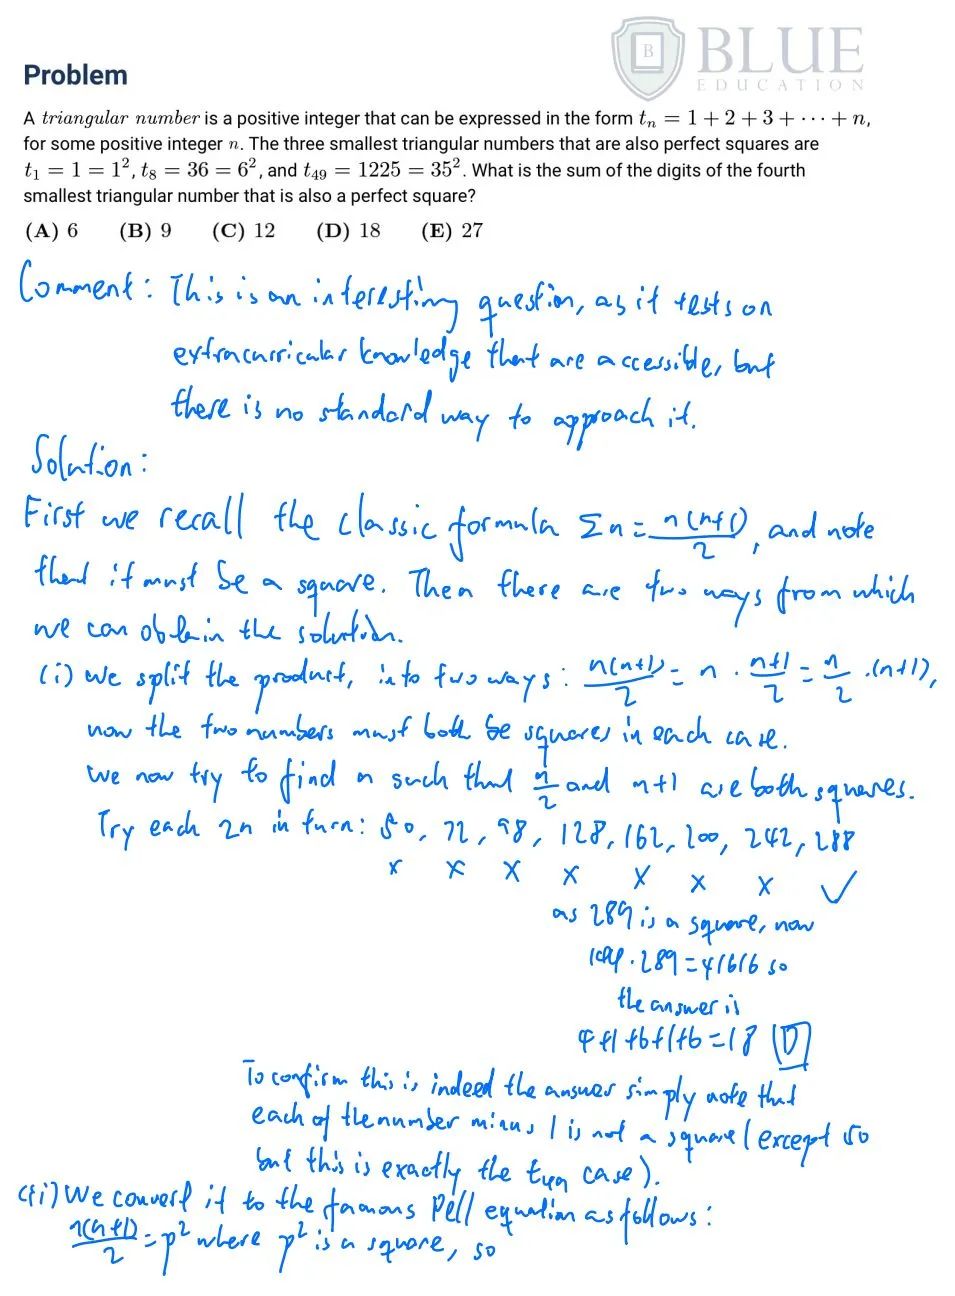 B BLUE
EDUCATION
Problem
A triangular number is a positive integer that can be expressed in the form tₙ = 1 + 2 + 3 + ⋯ + n,
for some positive integer n. The three smallest triangular numbers that are also perfect squares are
t₁ = 1 = 1², t₈ = 36 = 6², and t₄₉ = 1225 = 35². What is the sum of the digits of the fourth
smallest triangular number that is also a perfect square?
(A) 6 (B) 9 (C) 12 (D) 18 (E) 27
Comment: This is an interesting question, as it tests on
extracurricular knowledge that are accessible, but
there is no standard way to approach it.
Solution:
First we recall the classic formula Σn = n(n+1)/2, and note
that it must be a square. Then there are two ways from which
we can obtain the solution.
(i) we split the product, into two ways: n(n+1)/2 = n · (n+1)/2 = n/2 · (n+1),
now the two numbers must both be squares in each case.
we now try to find n such that n/2 and n+1 are both squares.
Try each 2n in turn: 50, 72, 98, 128, 162, 200, 242, 288
x x x x x x x ✓
as 289 is a square, now
144 · 289 = 41616 so
the answer is
4+1+6+1+6=18 (D)
To confirm this is indeed the answer simply note that
each of the number minus 1 is not a square (except 50
but this is exactly the t₄₉ case).
(ii) We convert it to the famous Pell equation as follows:
n(n+1)/2 = p² where p² is a square, so